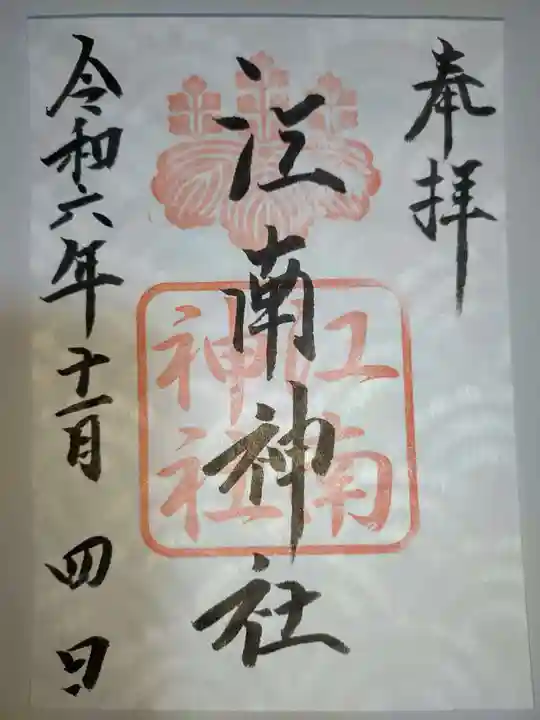 奉拝
江南神社
江南
神社
令和六年十一月四日